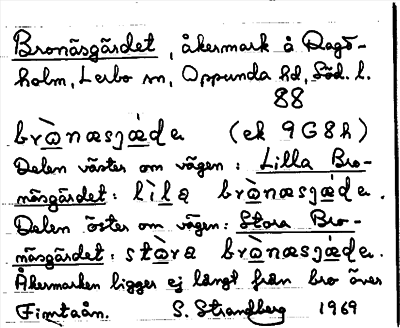 Bronäsgärdet, åkermark å Dagö-
holm, Lerbo sn, Oppunda hd, Söd. l.
88
brò̱næsjǽ̱de (ek 9G8h)
Delen väster om vägen: Lilla Bro-
näsgärdet: lìla brò̱næsjǽ̱de.
Delen öster om vägen: Stora Bro-
näsgärdet: stò̱ra brò̱næsjǽ̱de.
Åkermarken ligger ej långt från bro över
Fimtaån. S. Strandberg 1969